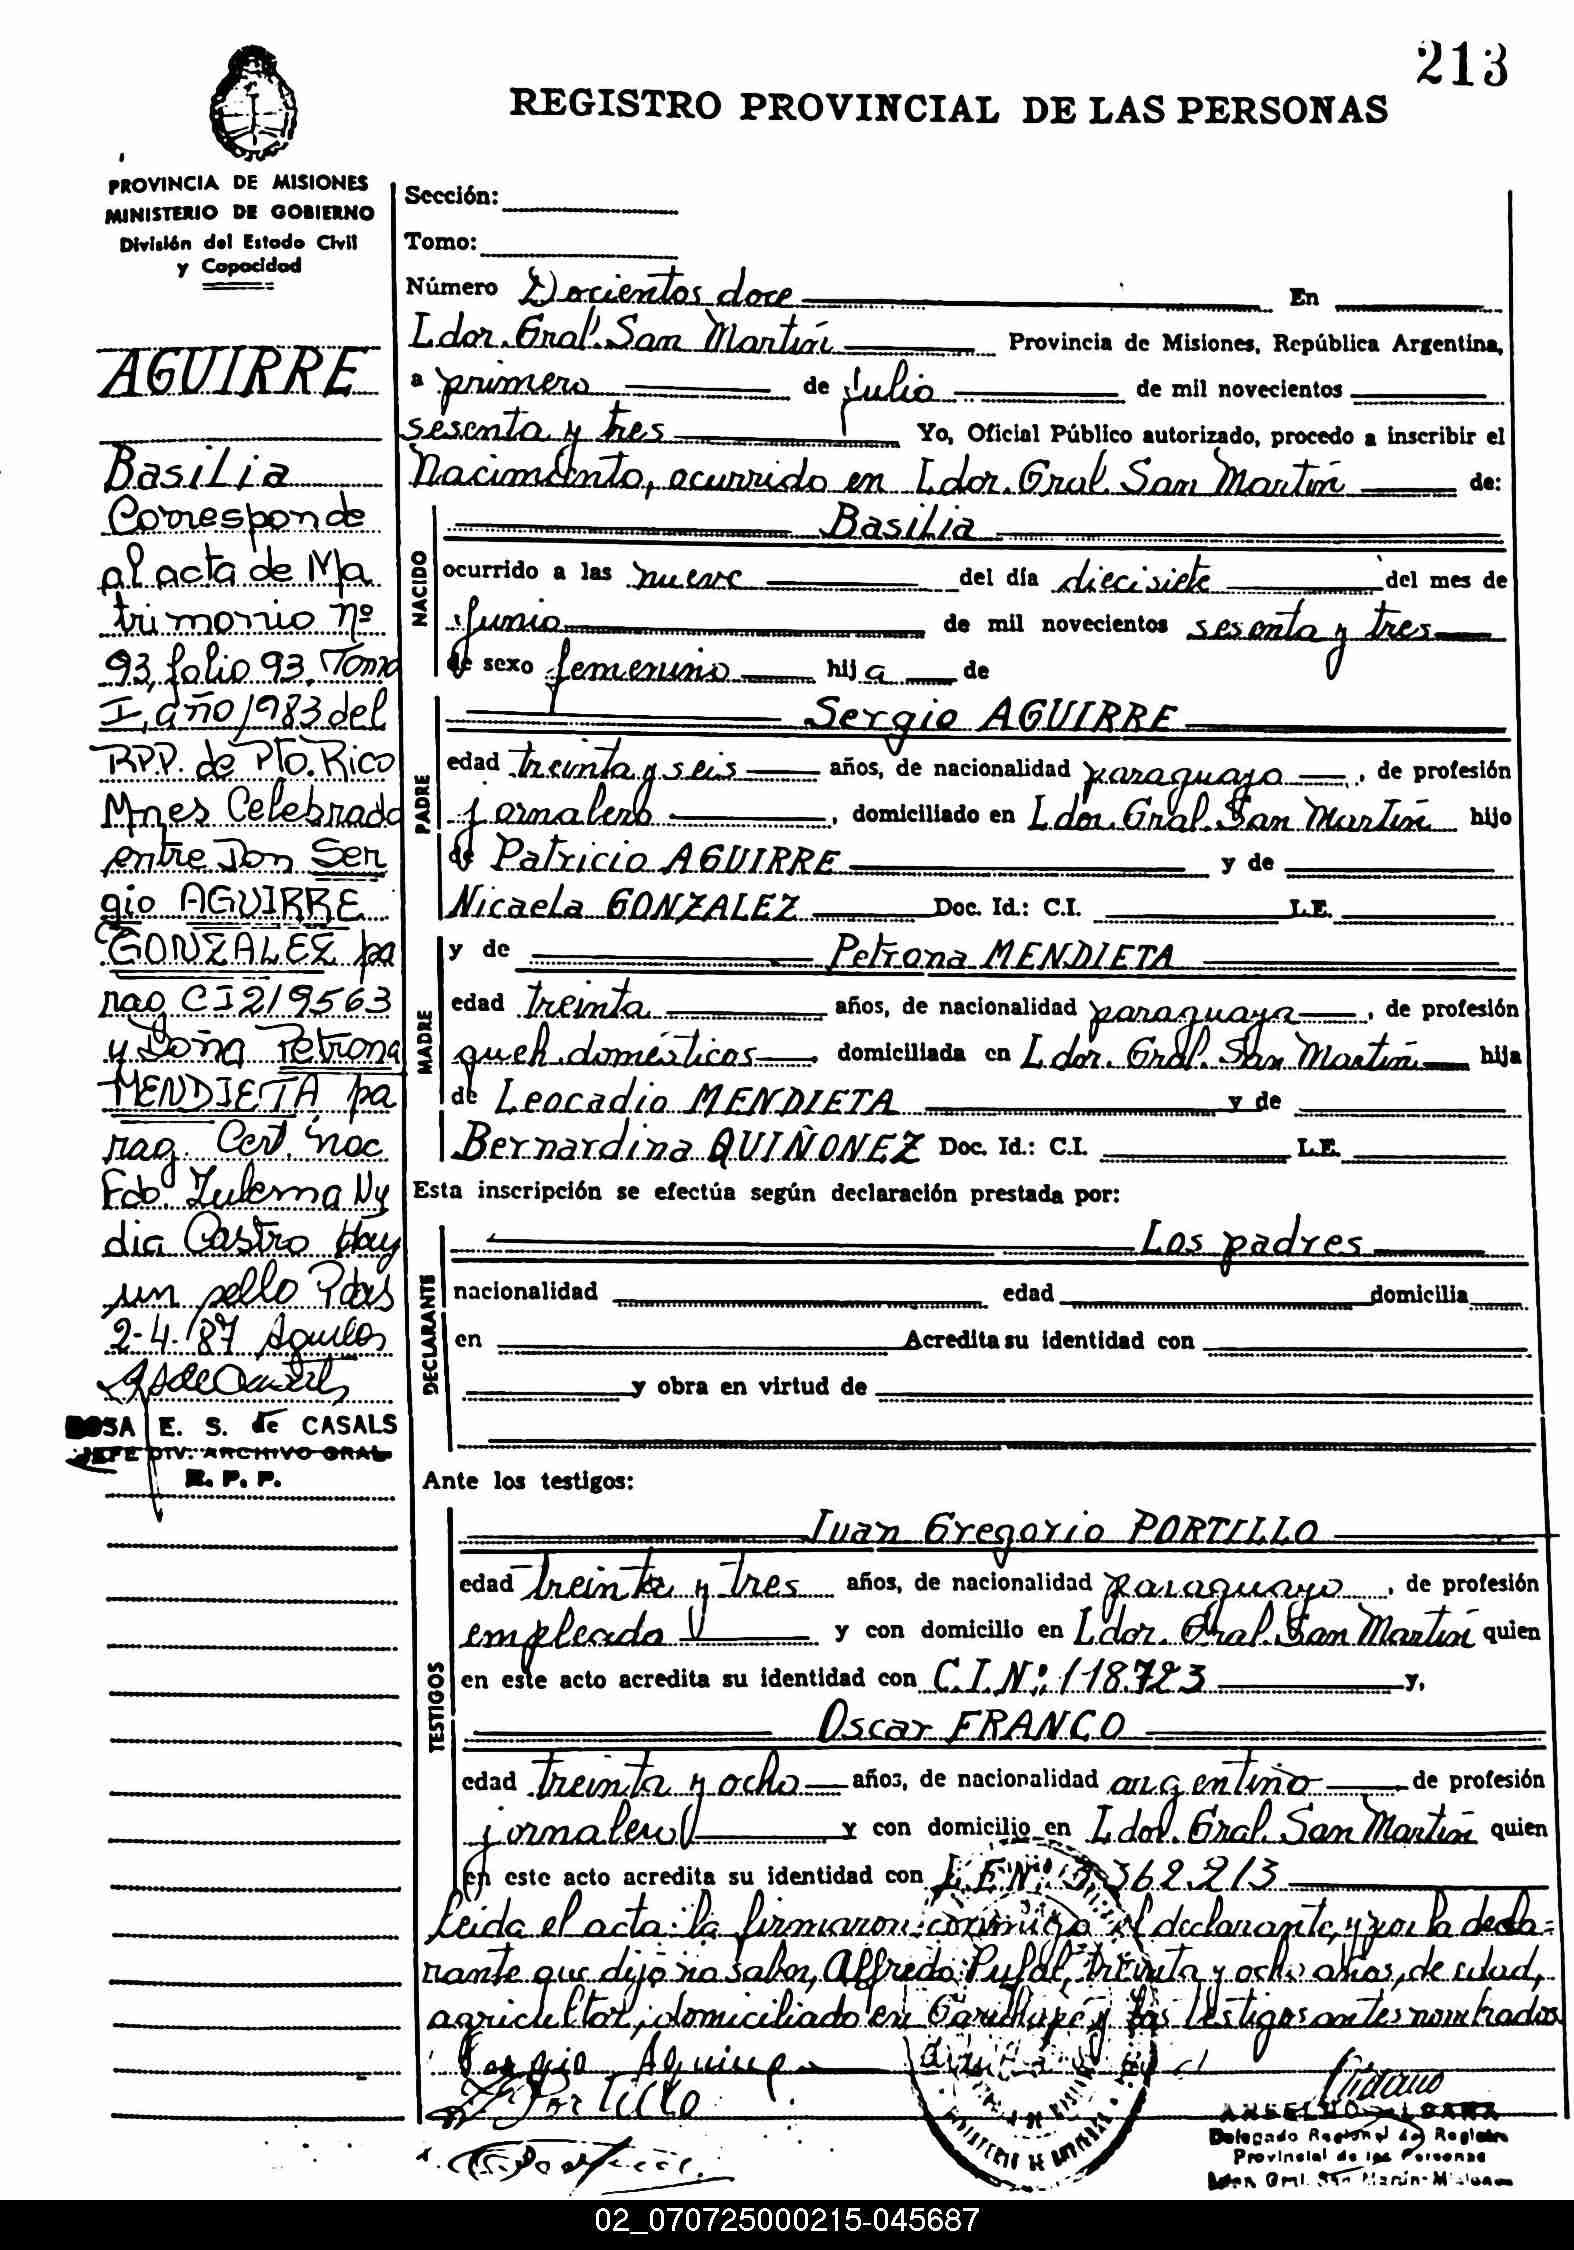 213
REGISTRO PROVINCIAL DE LAS PERSONAS
PROVINCIA DE MISIONES
MINISTERIO DE GOBIERNO
División del Estado Civil
y Capacidad
AGUIRRE
Basilia
Corresponde
al acta de Ma
trimonio nº
93, folio 93, Tomo
I, año 1983 del
RPP. de Pto. Rico
Mnes Celebrado
entre Don Ser
gio AGUIRRE
GONZALEZ pa
rag, CI 219563
y Doña Petrona
MENDIETA pa
rag. Cert. nac
Fdo. Zulema Ny
dia Castro Hay
un sello Pdas
2-4-87
ROSA E. S. de CASALS
JEFE DIV. ARCHIVO GRAL.
R. P. P.
Sección:
Tomo:
Número Docientos doce En
Ldor. Gral. San Martín Provincia de Misiones, República Argentina,
a primero de Julio de mil novecientos
sesenta y tres Yo, Oficial Público autorizado, procedo a inscribir el
Nacimiento, ocurrido en Ldor. Gral. San Martín de:
NACIDO
Basilia
ocurrido a las nueve del día diecisiete del mes de
Junio de mil novecientos sesenta y tres
de sexo femenino hija de
PADRE
Sergio AGUIRRE
edad treinta y seis años, de nacionalidad paraguayo, de profesión
jornalero, domiciliado en Ldor. Gral. San Martín hijo
de Patricio AGUIRRE y de
Nicaela GONZALEZ Doc. Id.: C.I. L.E.
MADRE
y de Petrona MENDIETA
edad treinta años, de nacionalidad paraguaya, de profesión
queh. domésticos domiciliada en Ldor. Gral. San Martín hija
de Leocadio MENDIETA y de
Bernardina QUIÑONEZ Doc. Id.: C.I. L.E.
Esta inscripción se efectúa según declaración prestada por:
DECLARANTE
Los padres
nacionalidad edad domicilia
en Acredita su identidad con
y obra en virtud de
Ante los testigos:
TESTIGOS
Juan Gregorio PORTILLO
edad treinta y tres años, de nacionalidad paraguayo, de profesión
empleado y con domicilio en Ldor. Gral. San Martín quien
en este acto acredita su identidad con C.I.Nº: 118.723 y,
Oscar FRANCO
edad treinta y ocho años, de nacionalidad argentino de profesión
jornalero y con domicilio en Ldor. Gral. San Martín quien
en este acto acredita su identidad con L.E.Nº: 3.362.213
Leida el acta: la firmaron conmigo el declarante, y por la decla=
rante que dijo no saber, Alfredo treinta y ocho años, de edad,
agricultor, domiciliado en Garuhapé y los testigos antes nombrados
Sergio Aguirre
Portillo
Delegado Regional del Registro
Provincial de las Personas
Ldor. Gral. San Martín-Misiones
02_070725000215-045687